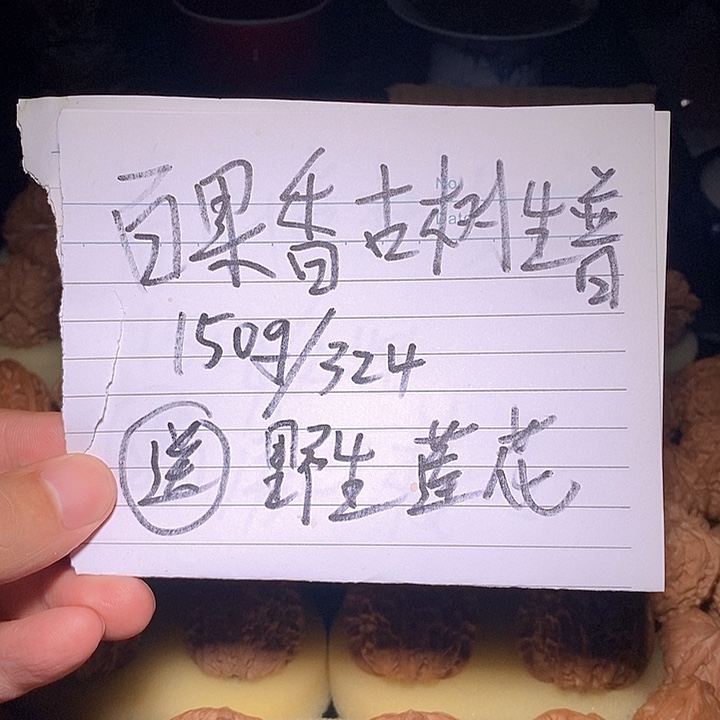 百果香古树生普
150g/324
送 野生莲花